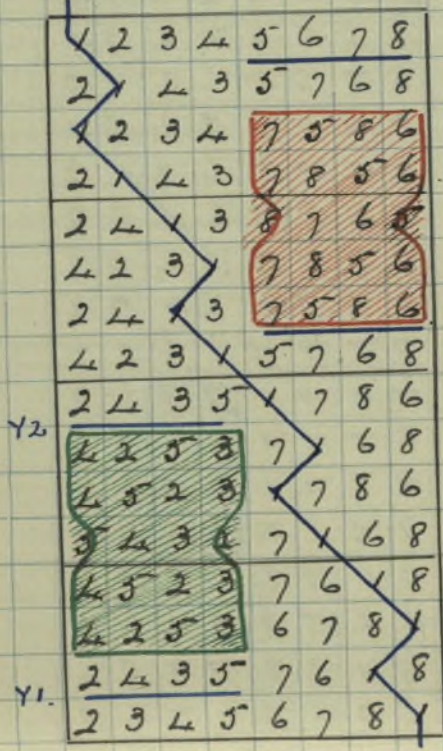 1 2 3 4 5 6 7 8
2 1 4 3 5 7 6 8
1 2 3 4 7 5 8 6
2 1 4 3 7 8 5 6
2 4 1 3 8 7 6 5
4 2 3 1 7 8 5 6
2 4 1 3 7 5 8 6
4 2 3 1 5 7 6 8
2 4 3 5 1 7 8 6
Y2 4 2 5 3 7 1 6 8
4 5 2 3 1 7 8 6
5 4 3 2 7 1 6 8
4 5 2 3 7 6 1 8
4 2 5 3 6 7 8 1
Y1. 2 4 3 5 7 6 1 8
2 3 4 5 6 7 8 1